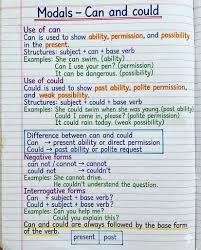 Modals – Can and could
Use of can
Can is used to show ability, permission, and possibility
in the present.
Structures: subject + can + base verb
Examples: She can swim. (ability)
Can I use your pen? (permission)
It can be dangerous. (possibility)
Use of could
Could is used to show past ability, polite permission,
and weak possibility.
Structures: subject + could + base verb
Examples: She could swim when she was young.(past ability)
Could I come in, please? (polite permission)
It could rain today. (weak possibility)
Difference between can and could
Can → present ability or direct permission
Could → past ability or polite request
Negative forms
can not / cannot → cannot
could not → couldn't
Examples: She cannot drive.
He couldn't understand the question.
Interrogative forms
Can + subject + base verb?
Could + subject + base verb?
Examples: Can you help me?
Could you explain this?
Can and could are always followed by the base form
of the verb.
present past